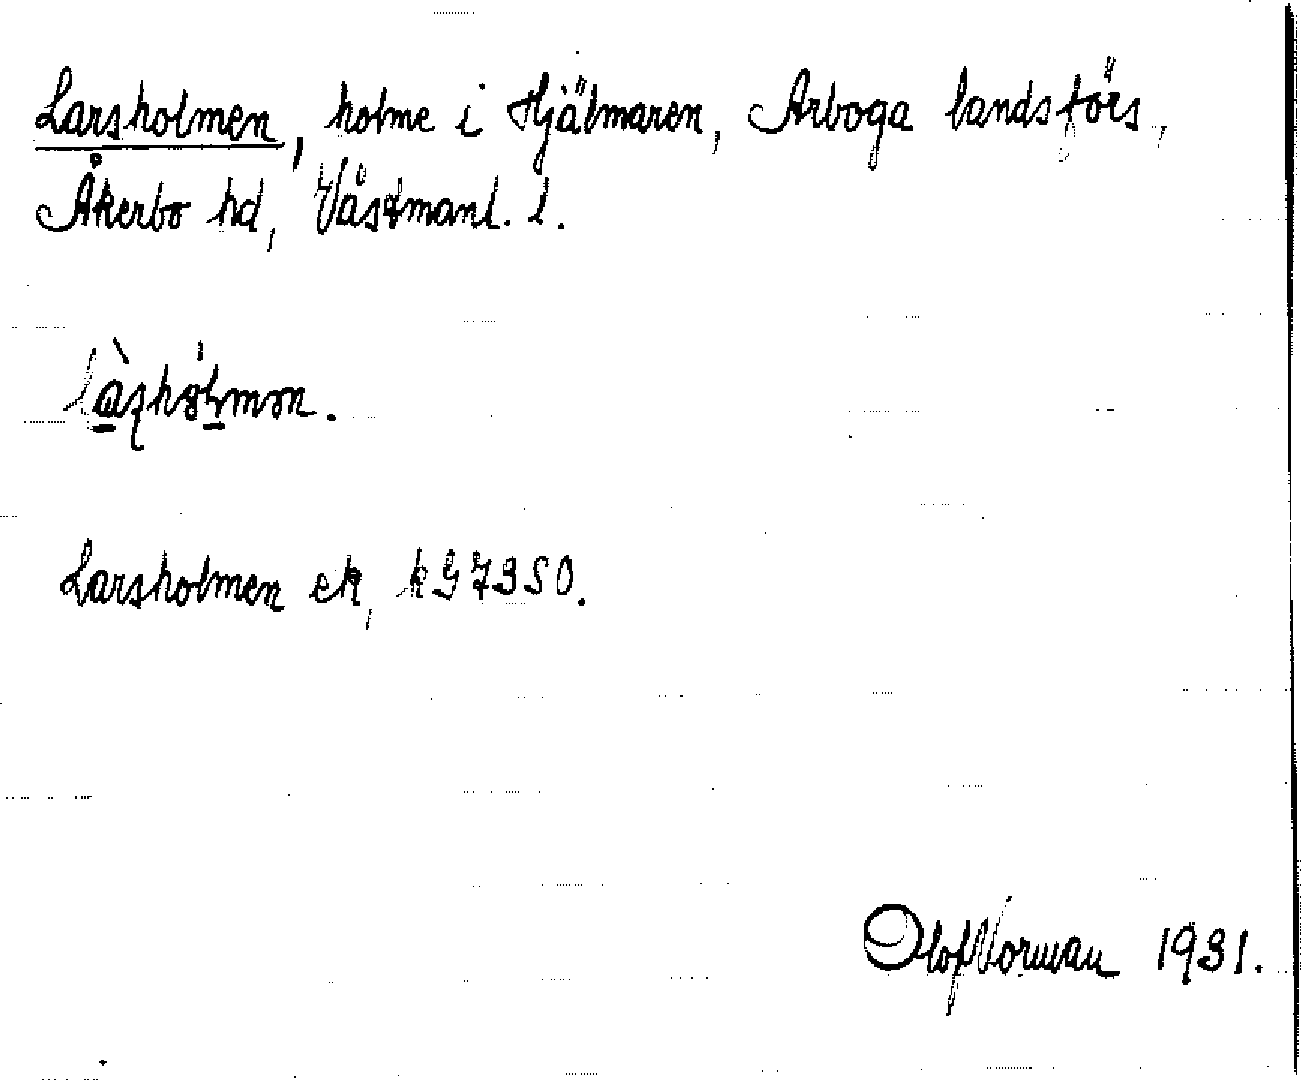 Larsholmen, holme i Hjälmaren, Arboga landsförs,
Åkerbo hd, Västmanl. l.
Larsholmen ek,
Olof Norman 1931.